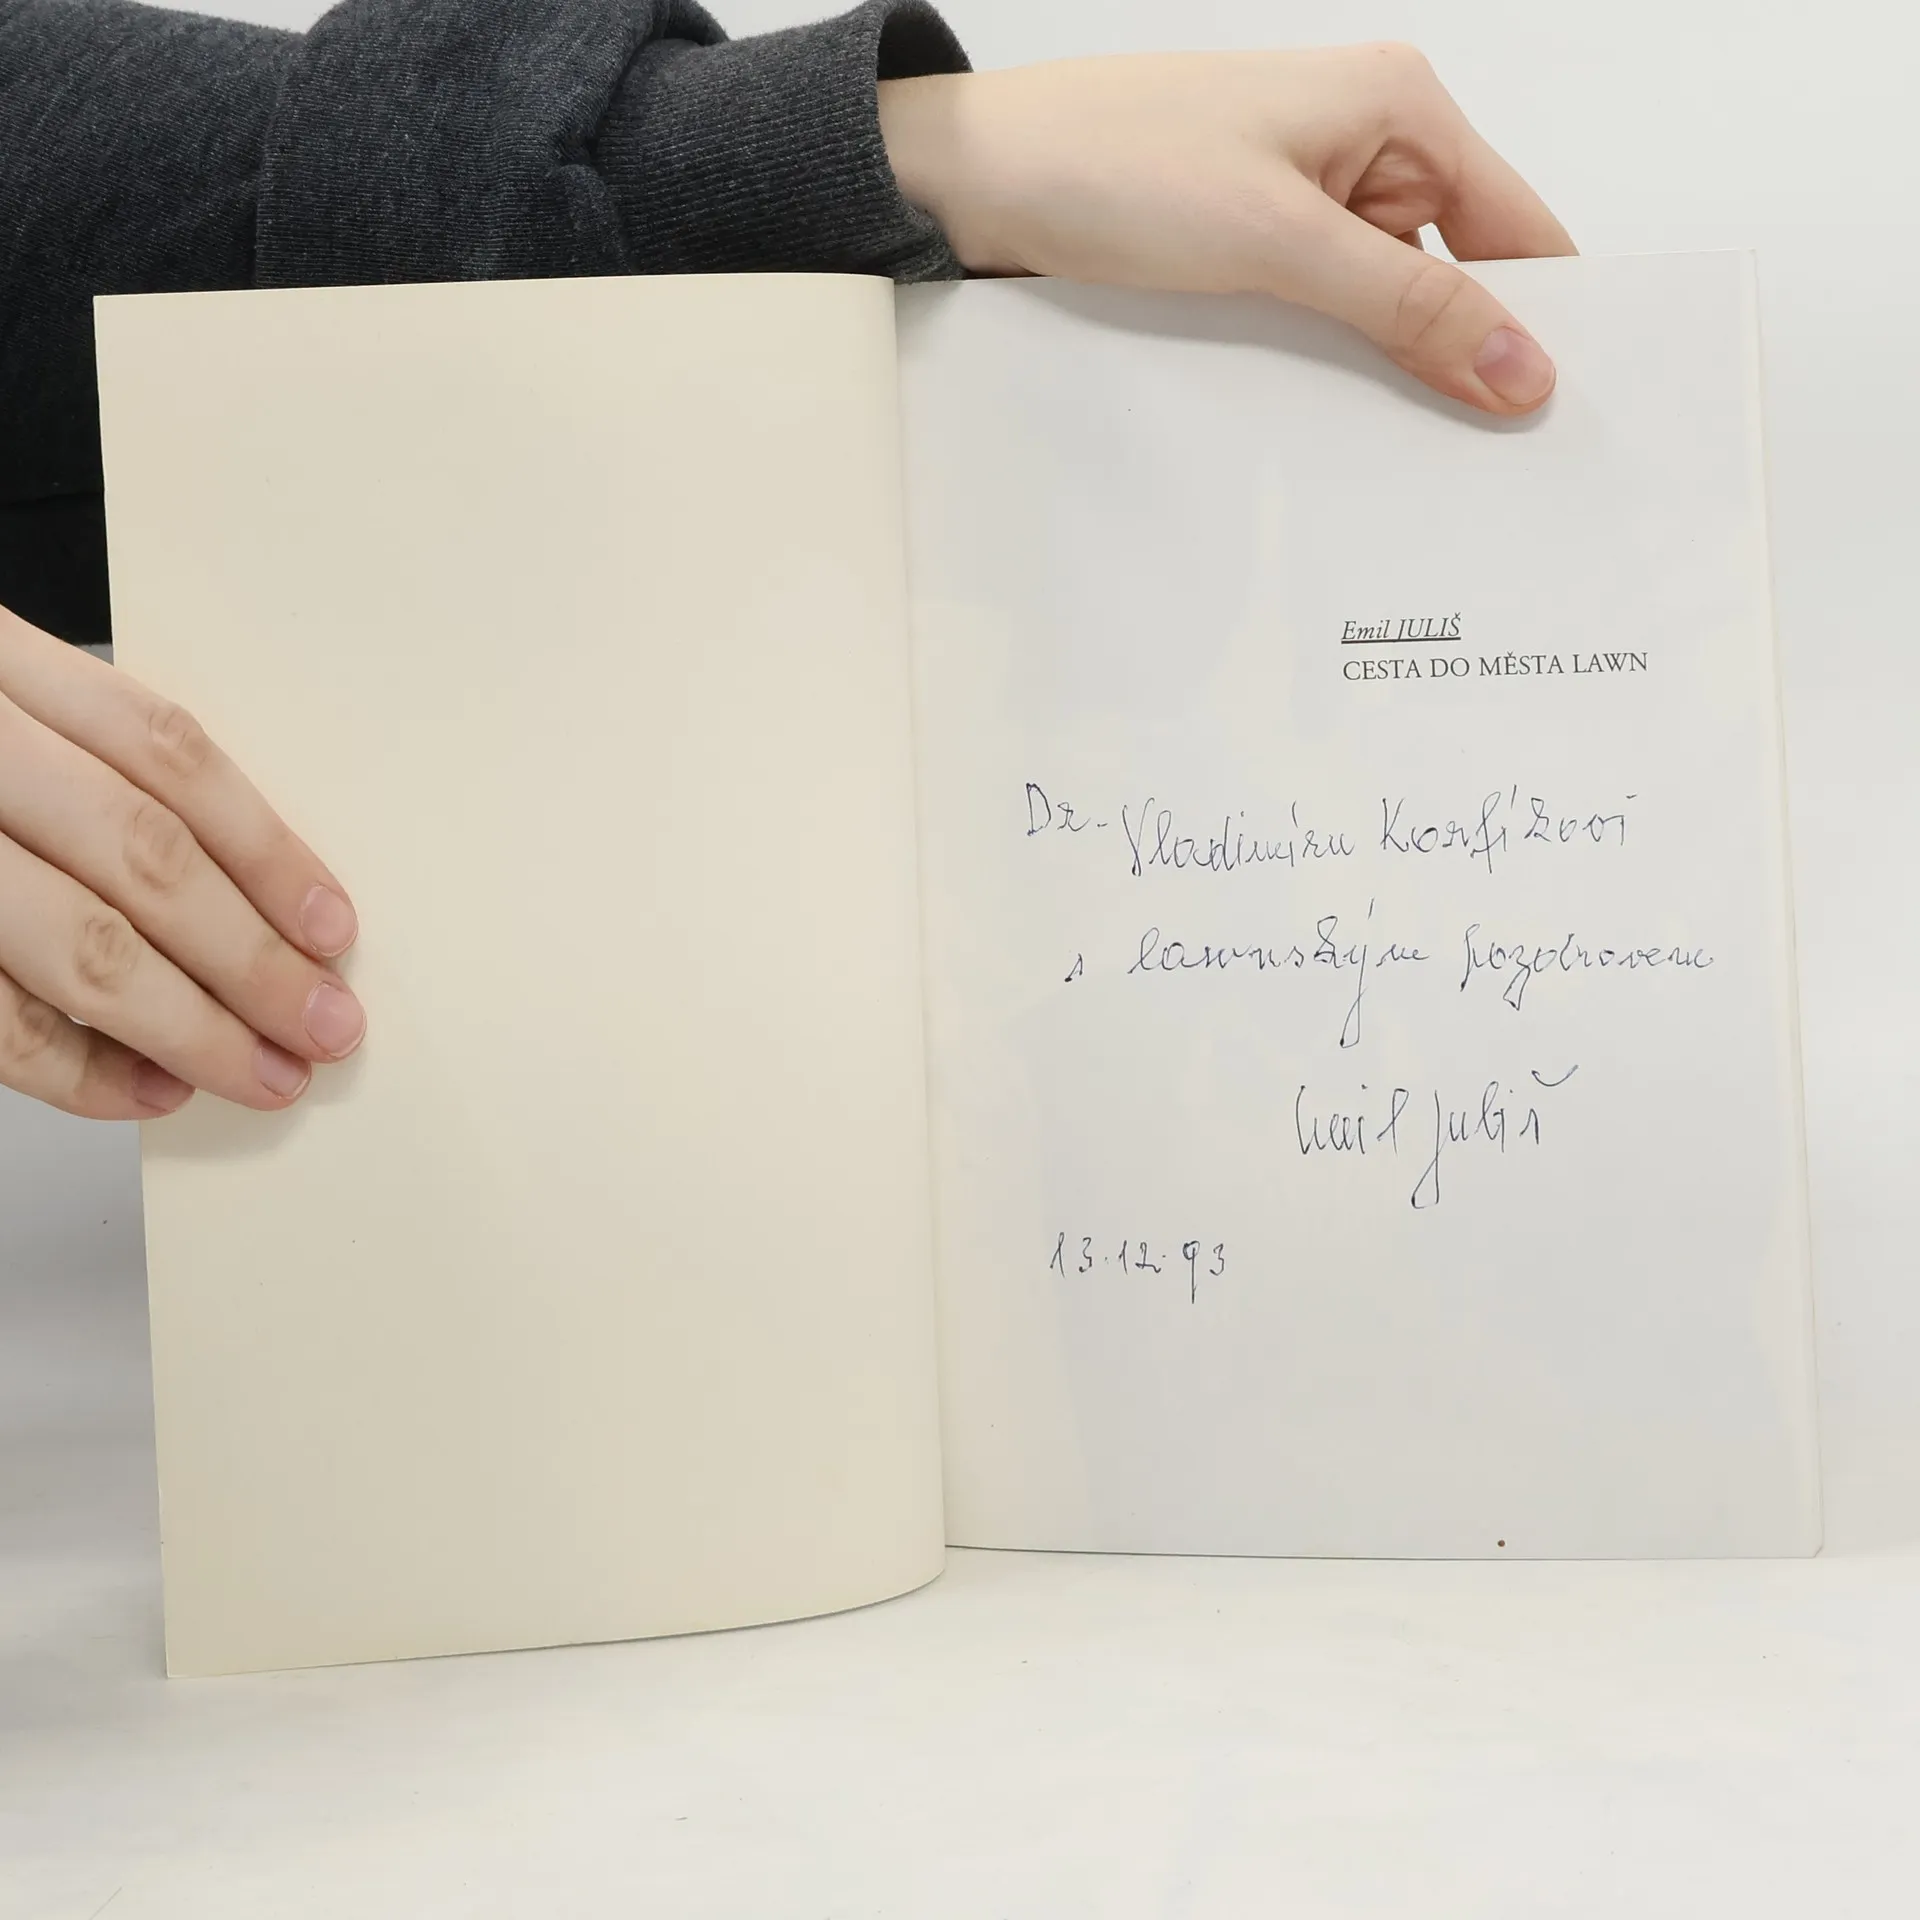 Emil JULIŠ
CESTA DO MĚSTA LAWN
Dr. Vladimíru Korfízovi
s lawnským pozdravem
Emil Juliš
13.12.93